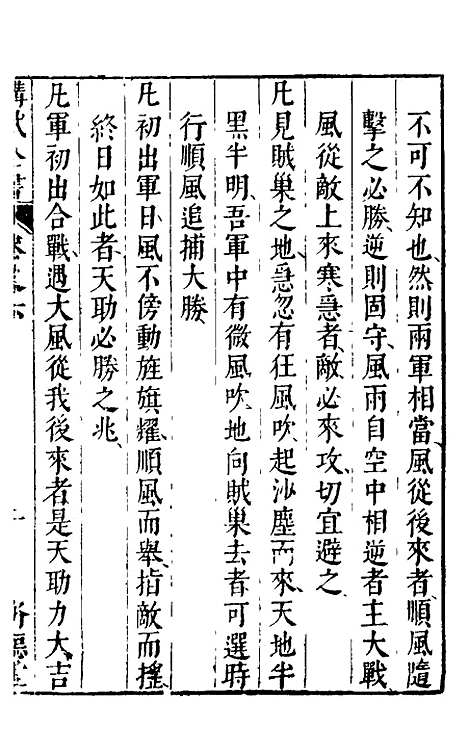 不可不知也、然則兩軍相當風從後來者、順風隨
擊之必勝、逆則固守、風雨自空中相逆者主大戰
風從敵上來寒急者、敵必來攻、切宜避之
凡見賊巢之地、急忽有狂風吹起沙塵而來、天地半
黑半明、吾軍中有微風吹地向賊巢去者可選時
行順風追捕大勝
凡初出軍日風不傍動旌旗耀、順風而舉、指敵而搖
終日如此者、天助必勝之兆、
凡軍初出合戰、遇大風從我後來者是天助力大吉
講武全書 卷之六